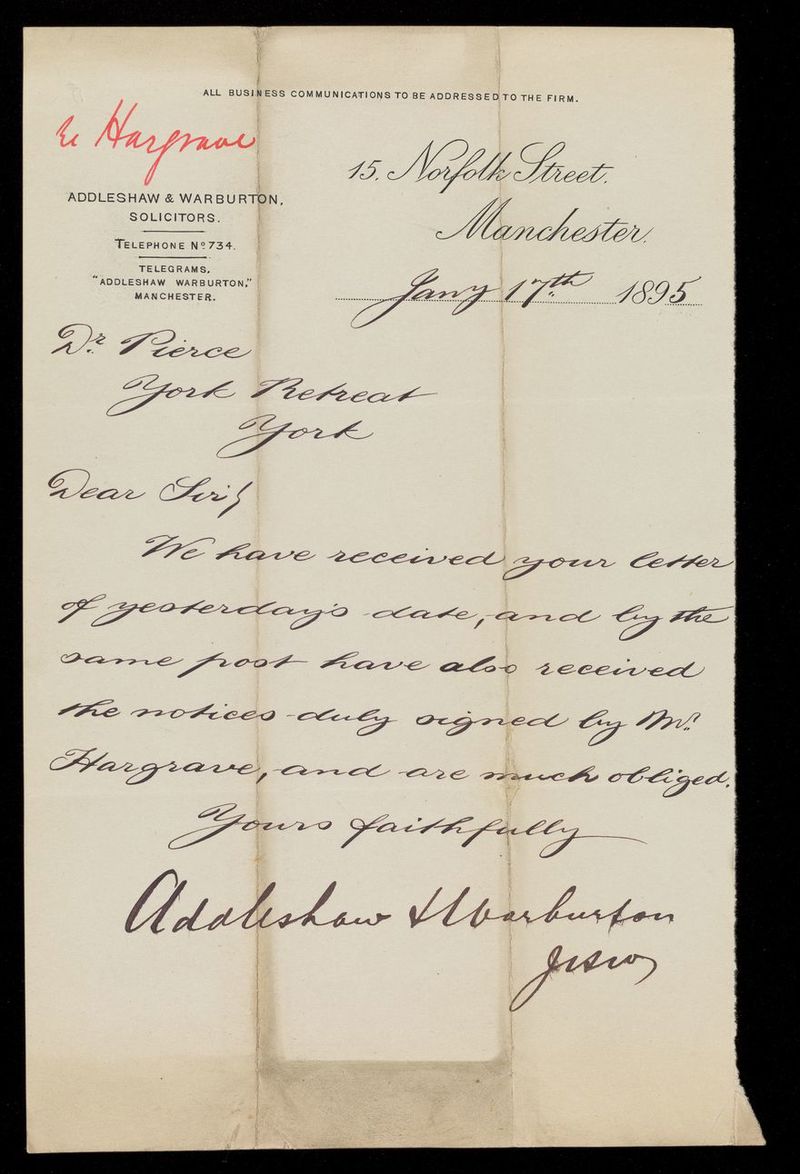 ALL BUSINESS COMMUNICATIONS TO BE ADDRESSED TO THE FIRM.
re Hargrave
ADDLESHAW & WARBURTON,
SOLICITORS.
TELEPHONE Nº 734.
TELEGRAMS,
"ADDLESHAW WARBURTON,"
MANCHESTER.
15, Norfolk Street,
Manchester,
Jany 17th 1895
Dr. Pierce
York Retreat
York
Dear Sir,
We have received your letter
of yesterday's date, and by the
same post have also received
the notices duly signed by Mr.
Hargrave, and are much obliged.
Yours faithfully
Addleshaw & Warburton